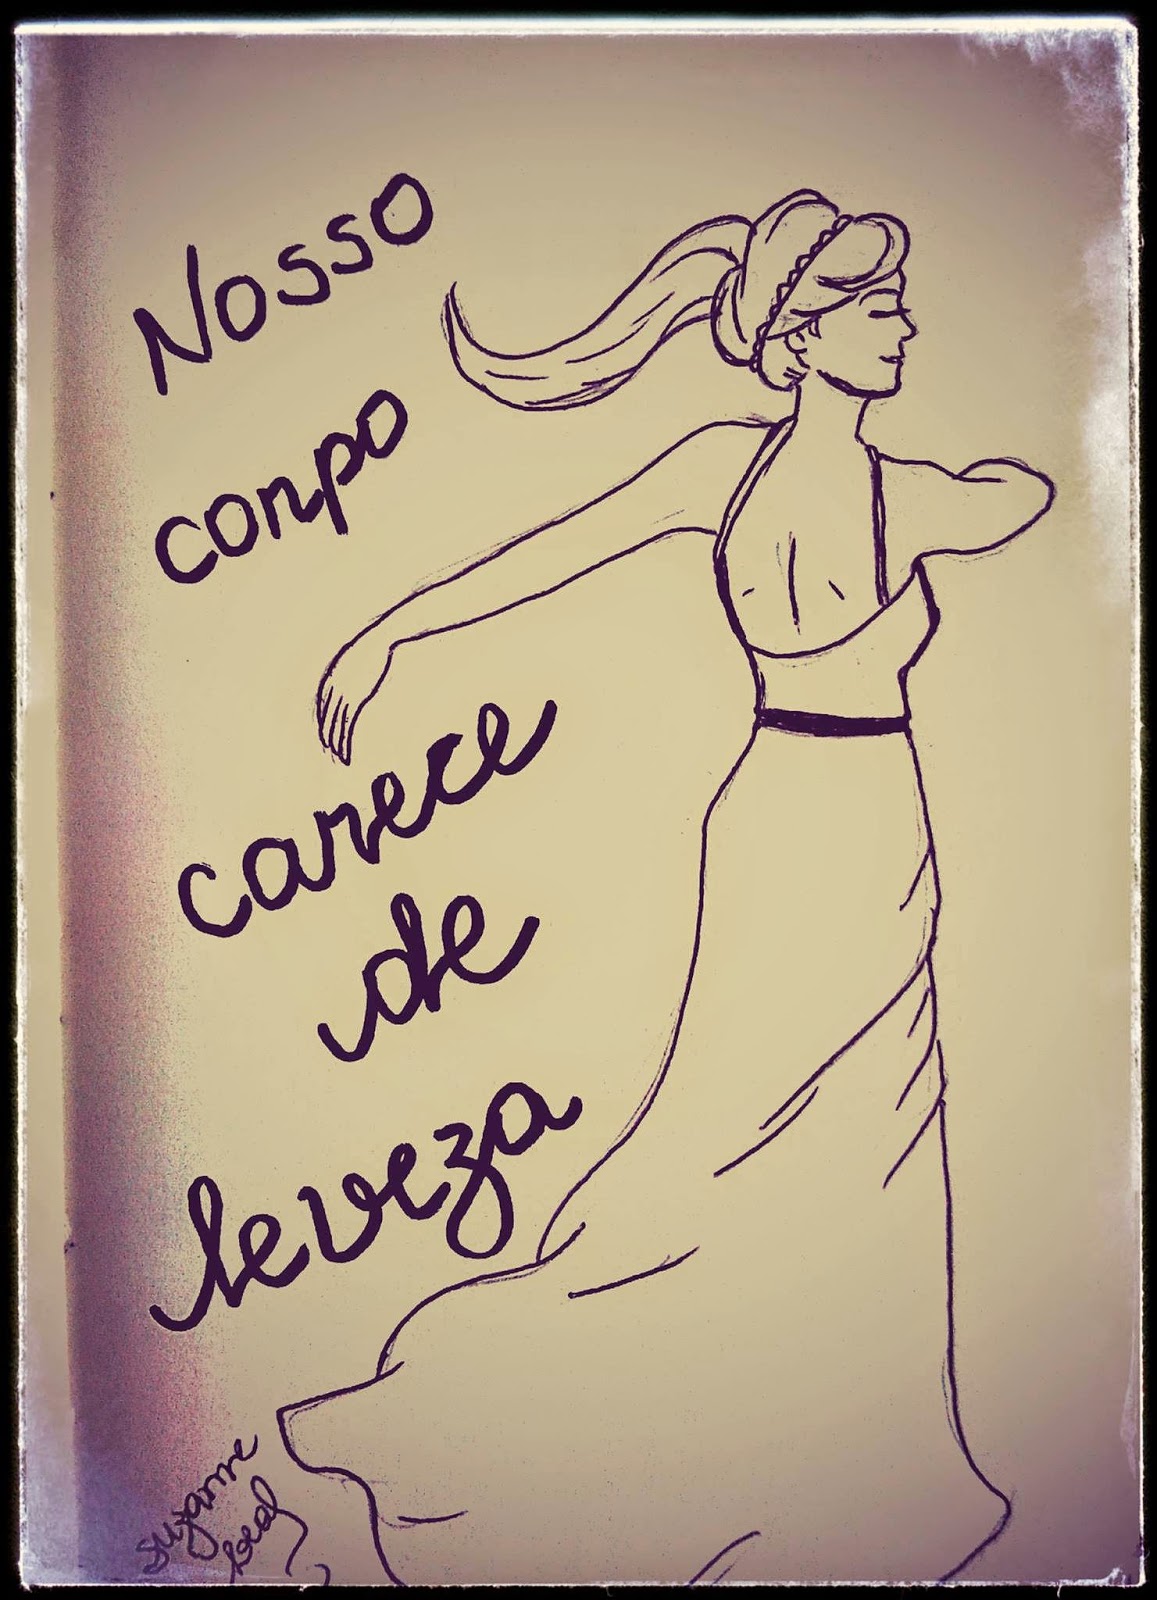 Nosso
corpo
carece
de
leveza
suzanne
leal